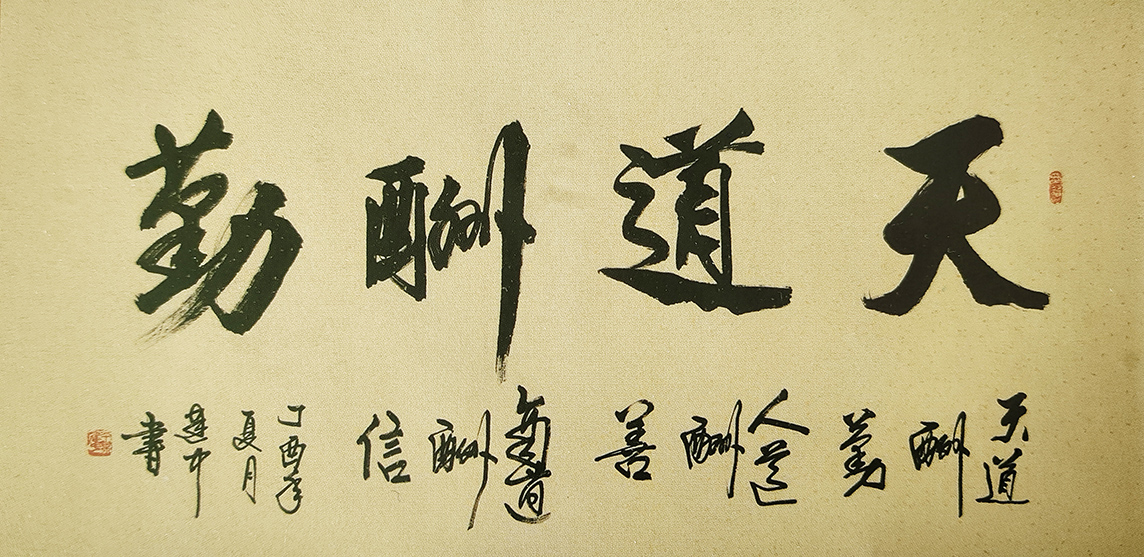 天道酬勤
天道
酬
勤
人道
酬
善
商道
酬
信
丁酉年
夏月
中
書